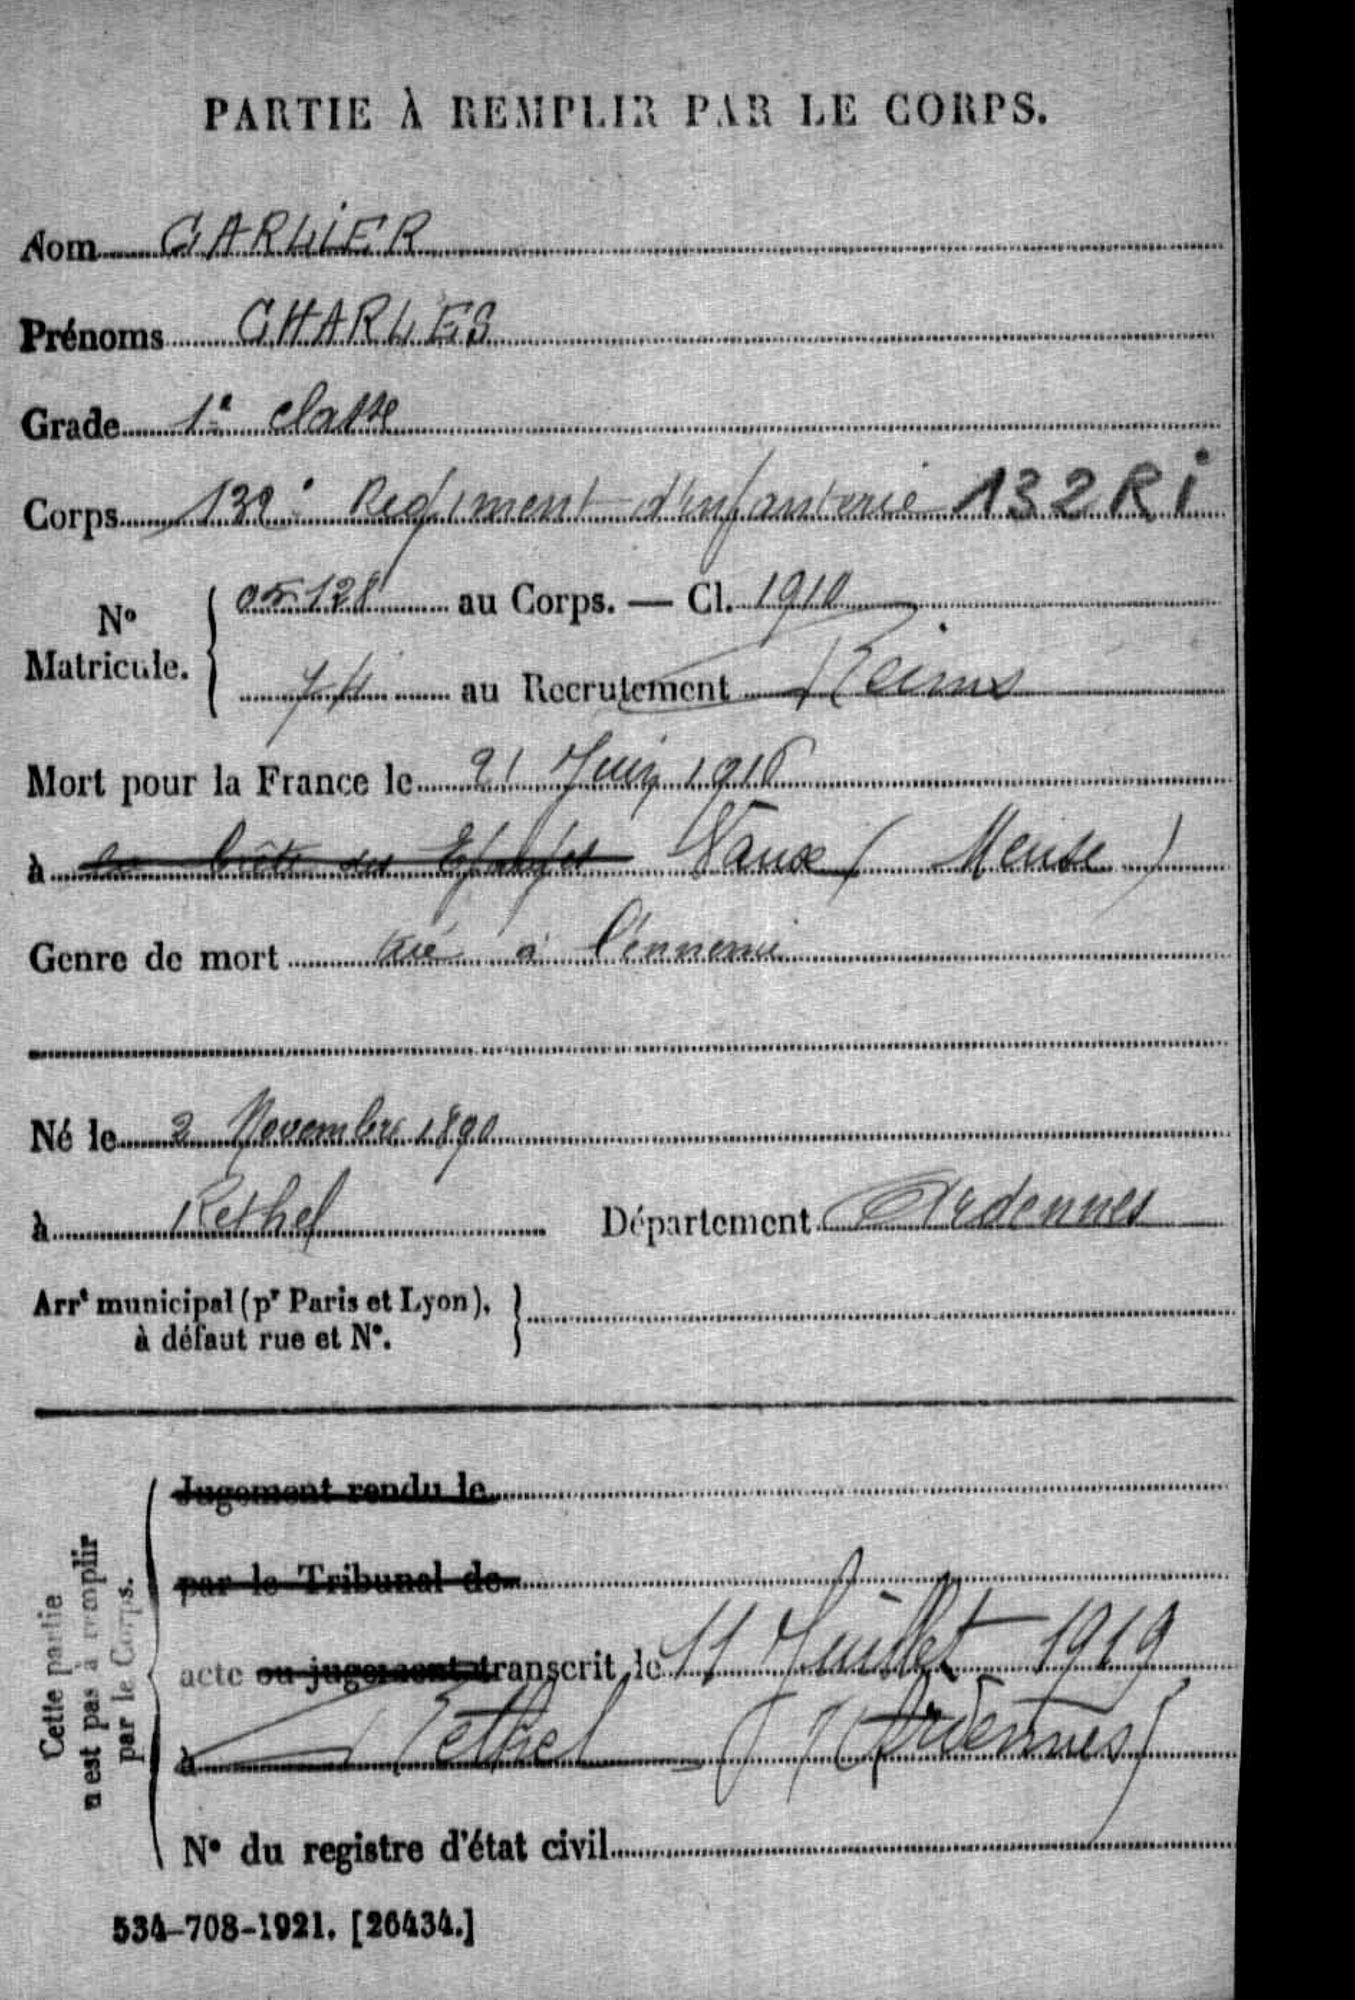 PARTIE À REMPLIR PAR LE CORPS.
Nom CARLIER
Prénoms CHARLES
Grade 1e classe
Corps 132e Regiment d'infanterie 132 RI
No Matricule. { 05128 au Corps. — Cl. 1910
au Recrutement Reims
Mort pour la France le 21 Juin 1916
à Vaux (Meuse)
Genre de mort tué à l'ennemi
Né le 2 Novembre 1890
à Rethel Département Ardennes
Arrt municipal (pr Paris et Lyon),
à défaut rue et No.
Cette partie
n'est pas à remplir
par le Corps.
Jugement rendu le
par le Tribunal de
acte ou jugement transcrit le 11 Juillet 1919
à Rethel (Ardennes)
No du registre d'état civil
534-708-1921. [26434.]